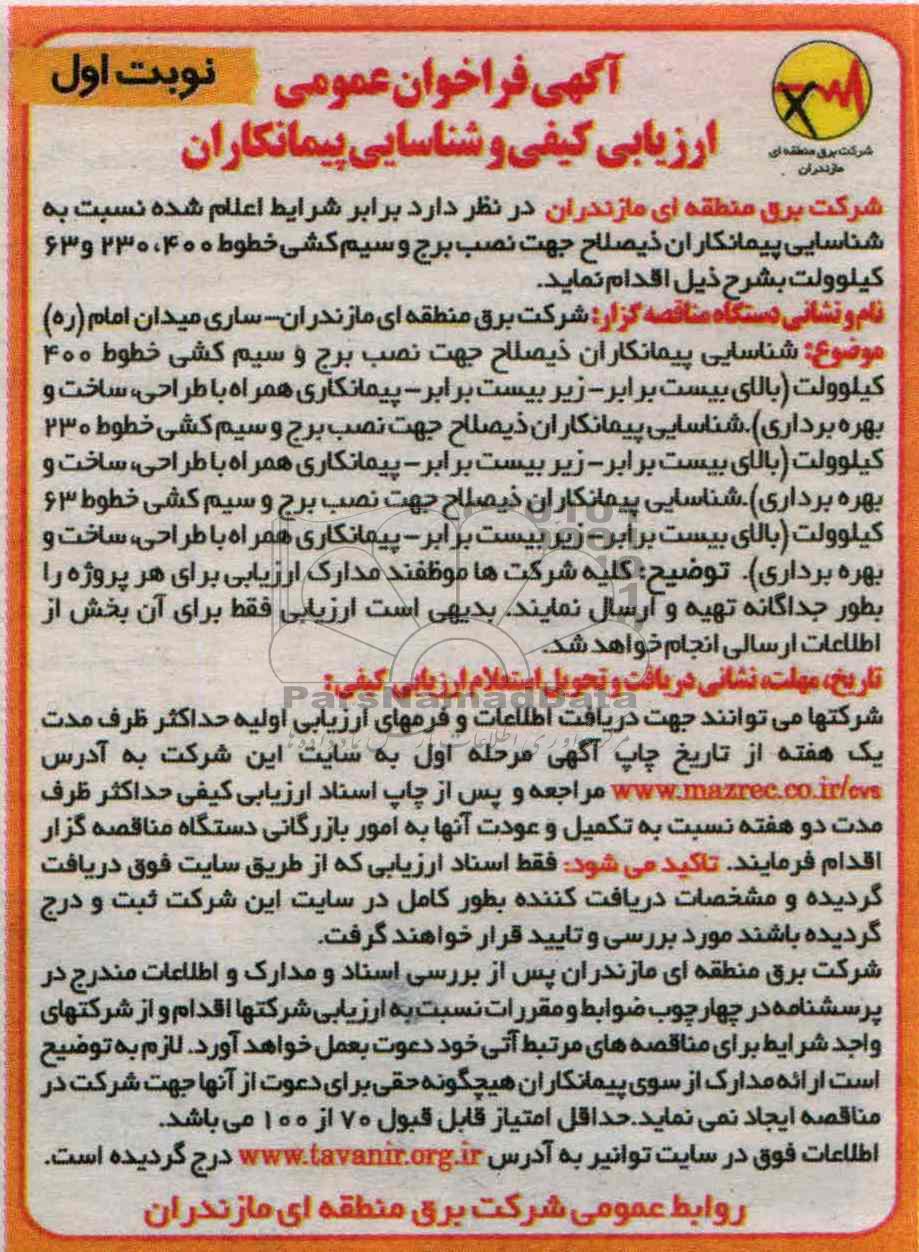 نوبت اول
آگهی فراخوان عمومی
ارزیابی کیفی و شناسایی پیمانکاران
شرکت برق منطقه ای
مازندران
شرکت برق منطقه ای مازندران در نظر دارد برابر شرایط اعلام شده نسبت به
شناسایی پیمانکاران ذیصلاح جهت نصب برج و سیم کشی خطوط ۴۰۰، ۲۳۰ و ۶۳
کیلوولت بشرح ذیل اقدام نماید.
نام و نشانی دستگاه مناقصه گزار: شرکت برق منطقه ای مازندران– ساری میدان امام (ره)
موضوع: شناسایی پیمانکاران ذیصلاح جهت نصب برج و سیم کشی خطوط ۴۰۰
کیلوولت (بالای بیست برابر– زیر بیست برابر– پیمانکاری همراه با طراحی، ساخت و
بهره برداری). شناسایی پیمانکاران ذیصلاح جهت نصب برج و سیم کشی خطوط ۲۳۰
کیلوولت (بالای بیست برابر– زیر بیست برابر– پیمانکاری همراه با طراحی، ساخت و
بهره برداری). شناسایی پیمانکاران ذیصلاح جهت نصب برج و سیم کشی خطوط ۶۳
کیلوولت (بالای بیست برابر– زیر بیست برابر– پیمانکاری همراه با طراحی، ساخت و
بهره برداری). توضیح: کلیه شرکت ها موظفند مدارک ارزیابی برای هر پروژه را
بطور جداگانه تهیه و ارسال نمایند. بدیهی است ارزیابی فقط برای آن بخش از
اطلاعات ارسالی انجام خواهد شد.
تاریخ، مهلت، نشانی دریافت و تحویل استعلام ارزیابی کیفی:
ParsNamadData
شرکتها می توانند جهت دریافت اطلاعات و فرمهای ارزیابی اولیه حداکثر ظرف مدت
یک هفته از تاریخ چاپ آگهی مرحله اول به سایت این شرکت به آدرس
www.mazrec.co.ir/cvs مراجعه و پس از چاپ اسناد ارزیابی کیفی حداکثر ظرف
مدت دو هفته نسبت به تکمیل و عودت آنها به امور بازرگانی دستگاه مناقصه گزار
اقدام فرمایند. تاکید می شود: فقط اسناد ارزیابی که از طریق سایت فوق دریافت
گردیده و مشخصات دریافت کننده بطور کامل در سایت این شرکت ثبت و درج
گردیده باشند مورد بررسی و تایید قرار خواهند گرفت.
شرکت برق منطقه ای مازندران پس از بررسی اسناد و مدارک و اطلاعات مندرج در
پرسشنامه در چهارچوب ضوابط و مقررات نسبت به ارزیابی شرکتها اقدام و از شرکتهای
واجد شرایط برای مناقصه های مرتبط آتی خود دعوت بعمل خواهد آورد. لازم به توضیح
است ارائه مدارک از سوی پیمانکاران هیچگونه حقی برای دعوت از آنها جهت شرکت در
مناقصه ایجاد نمی نماید. حداقل امتیاز قابل قبول ۷۰ از ۱۰۰ می باشد.
اطلاعات فوق در سایت توانیر به آدرس www.tavanir.org.ir درج گردیده است.
روابط عمومی شرکت برق منطقه ای مازندران